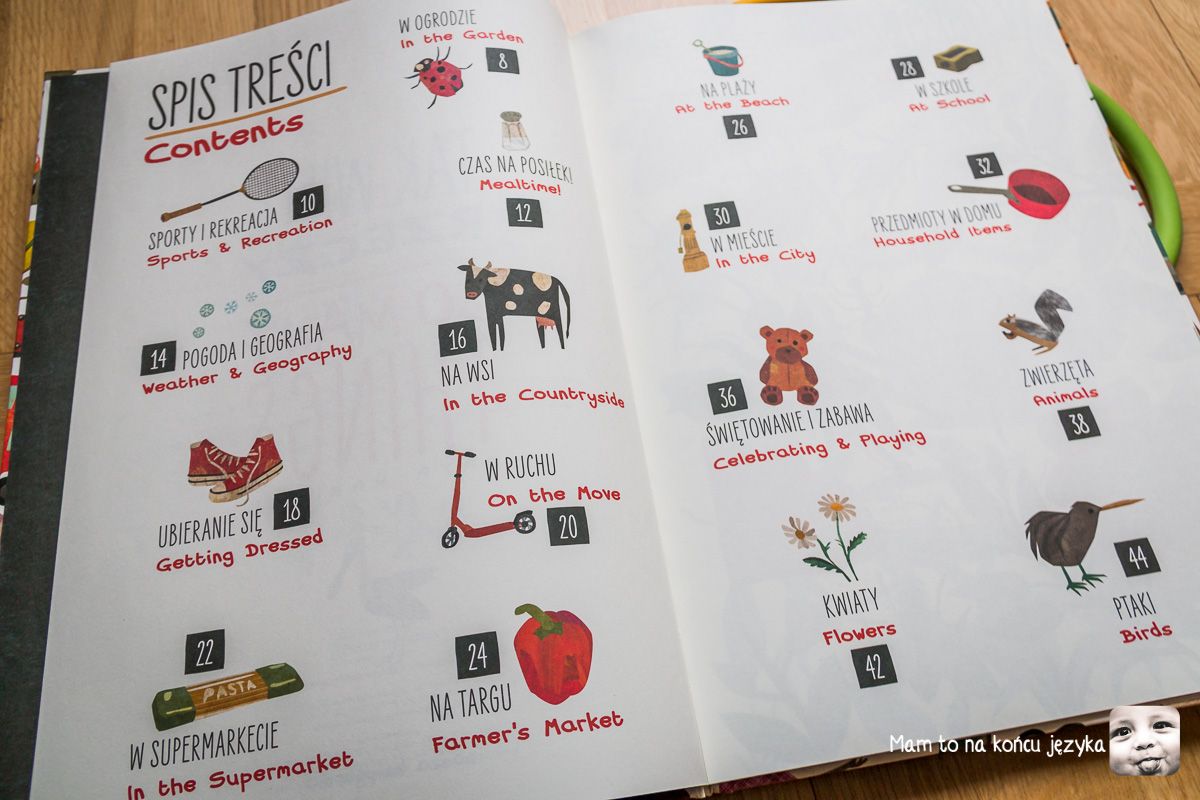 SPIS TREŚCI
Contents
W OGRODZIE
In the Garden
8
SPORTY I REKREACJA
10
Sports & Recreation
CZAS NA POSIŁEK!
Mealtime!
12
14
POGODA I GEOGRAFIA
Weather & Geography
16
NA WSI
In the Countryside
UBIERANIE SIĘ
18
Getting Dressed
W RUCHU
On the Move
20
22
PASTA
W SUPERMARKECIE
In the Supermarket
24
NA TARGU
Farmer's Market
NA PLAŻY
At the Beach
26
28
W SZKOLE
At School
30
W MIEŚCIE
In the City
32
PRZEDMIOTY W DOMU
Household Items
36
ŚWIĘTOWANIE I ZABAWA
Celebrating & Playing
ZWIERZĘTA
Animals
38
KWIATY
Flowers
42
44
PTAKI
Birds
Mam to na końcu języka